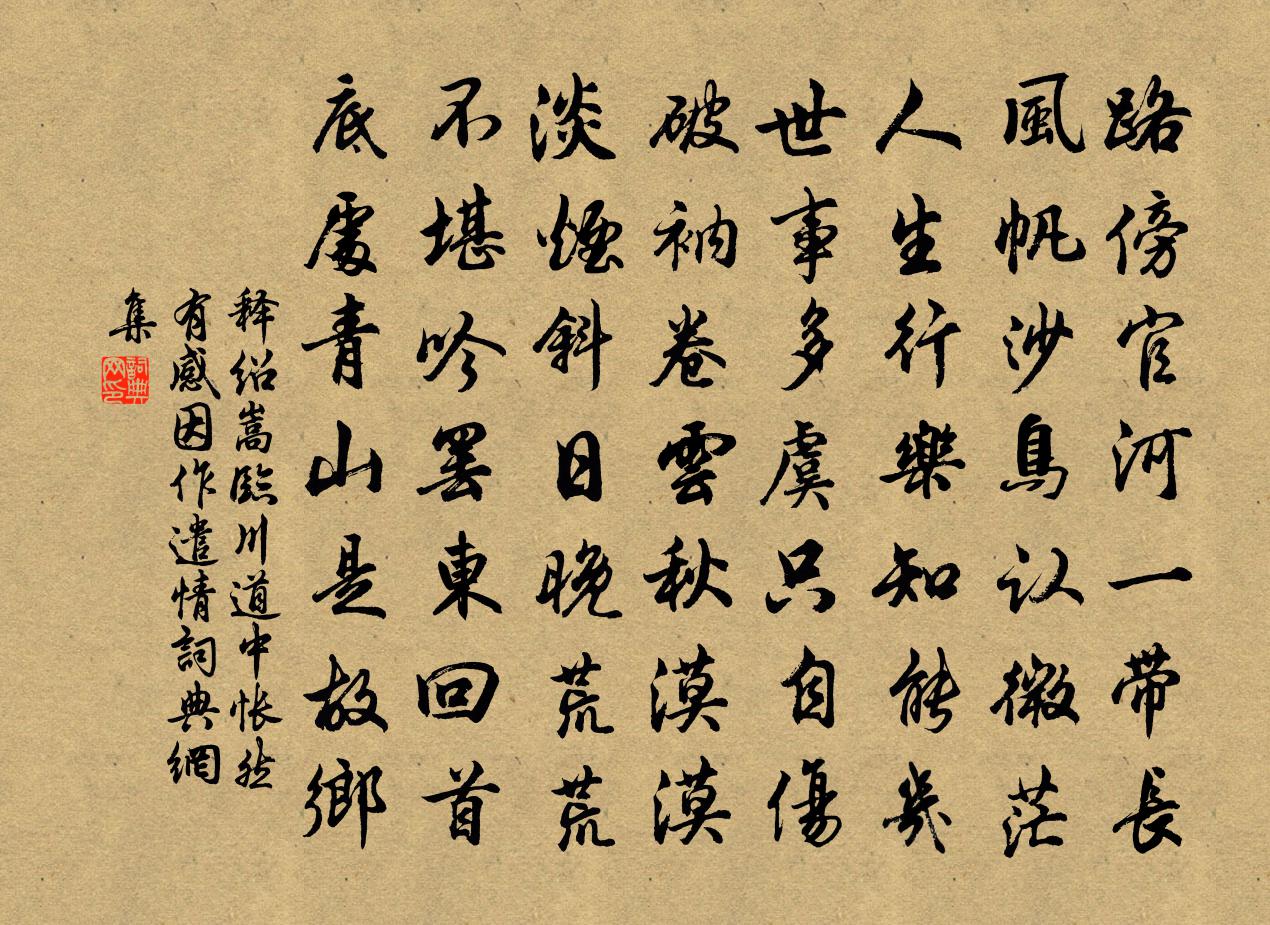 路傍官河一带長
風帆沙鳥认微茫
人生行樂知能幾
世事多虞只自傷
破衲卷雲秋漠漠
淡煙斜日晚荒荒
不堪吟罢東回首
底處青山是故鄉
释绍嵩臨川道中怅然
有感因作遣情詞典網
集
詞典网印